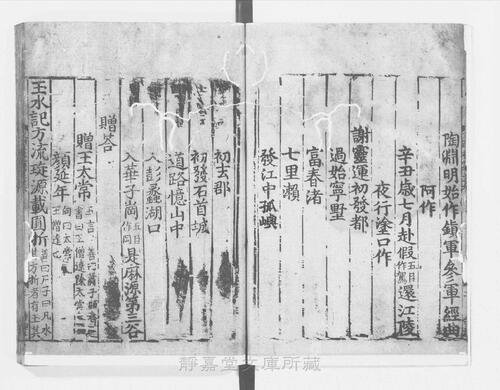 陶淵明始作鎮軍參軍經曲
阿作
辛丑歲七月赴假五臣作駕還江陵
夜行塗口作
謝靈運初發都
過始寧墅
富春渚
七里瀨
登江中孤嶼
初去郡
初發石首城
道路憶山中
入彭蠡湖口
入華子崗五臣作岡是麻源第三谷
贈答
贈王太常
顏延年
玉水記方流琁源載圓折
靜嘉堂文庫所藏